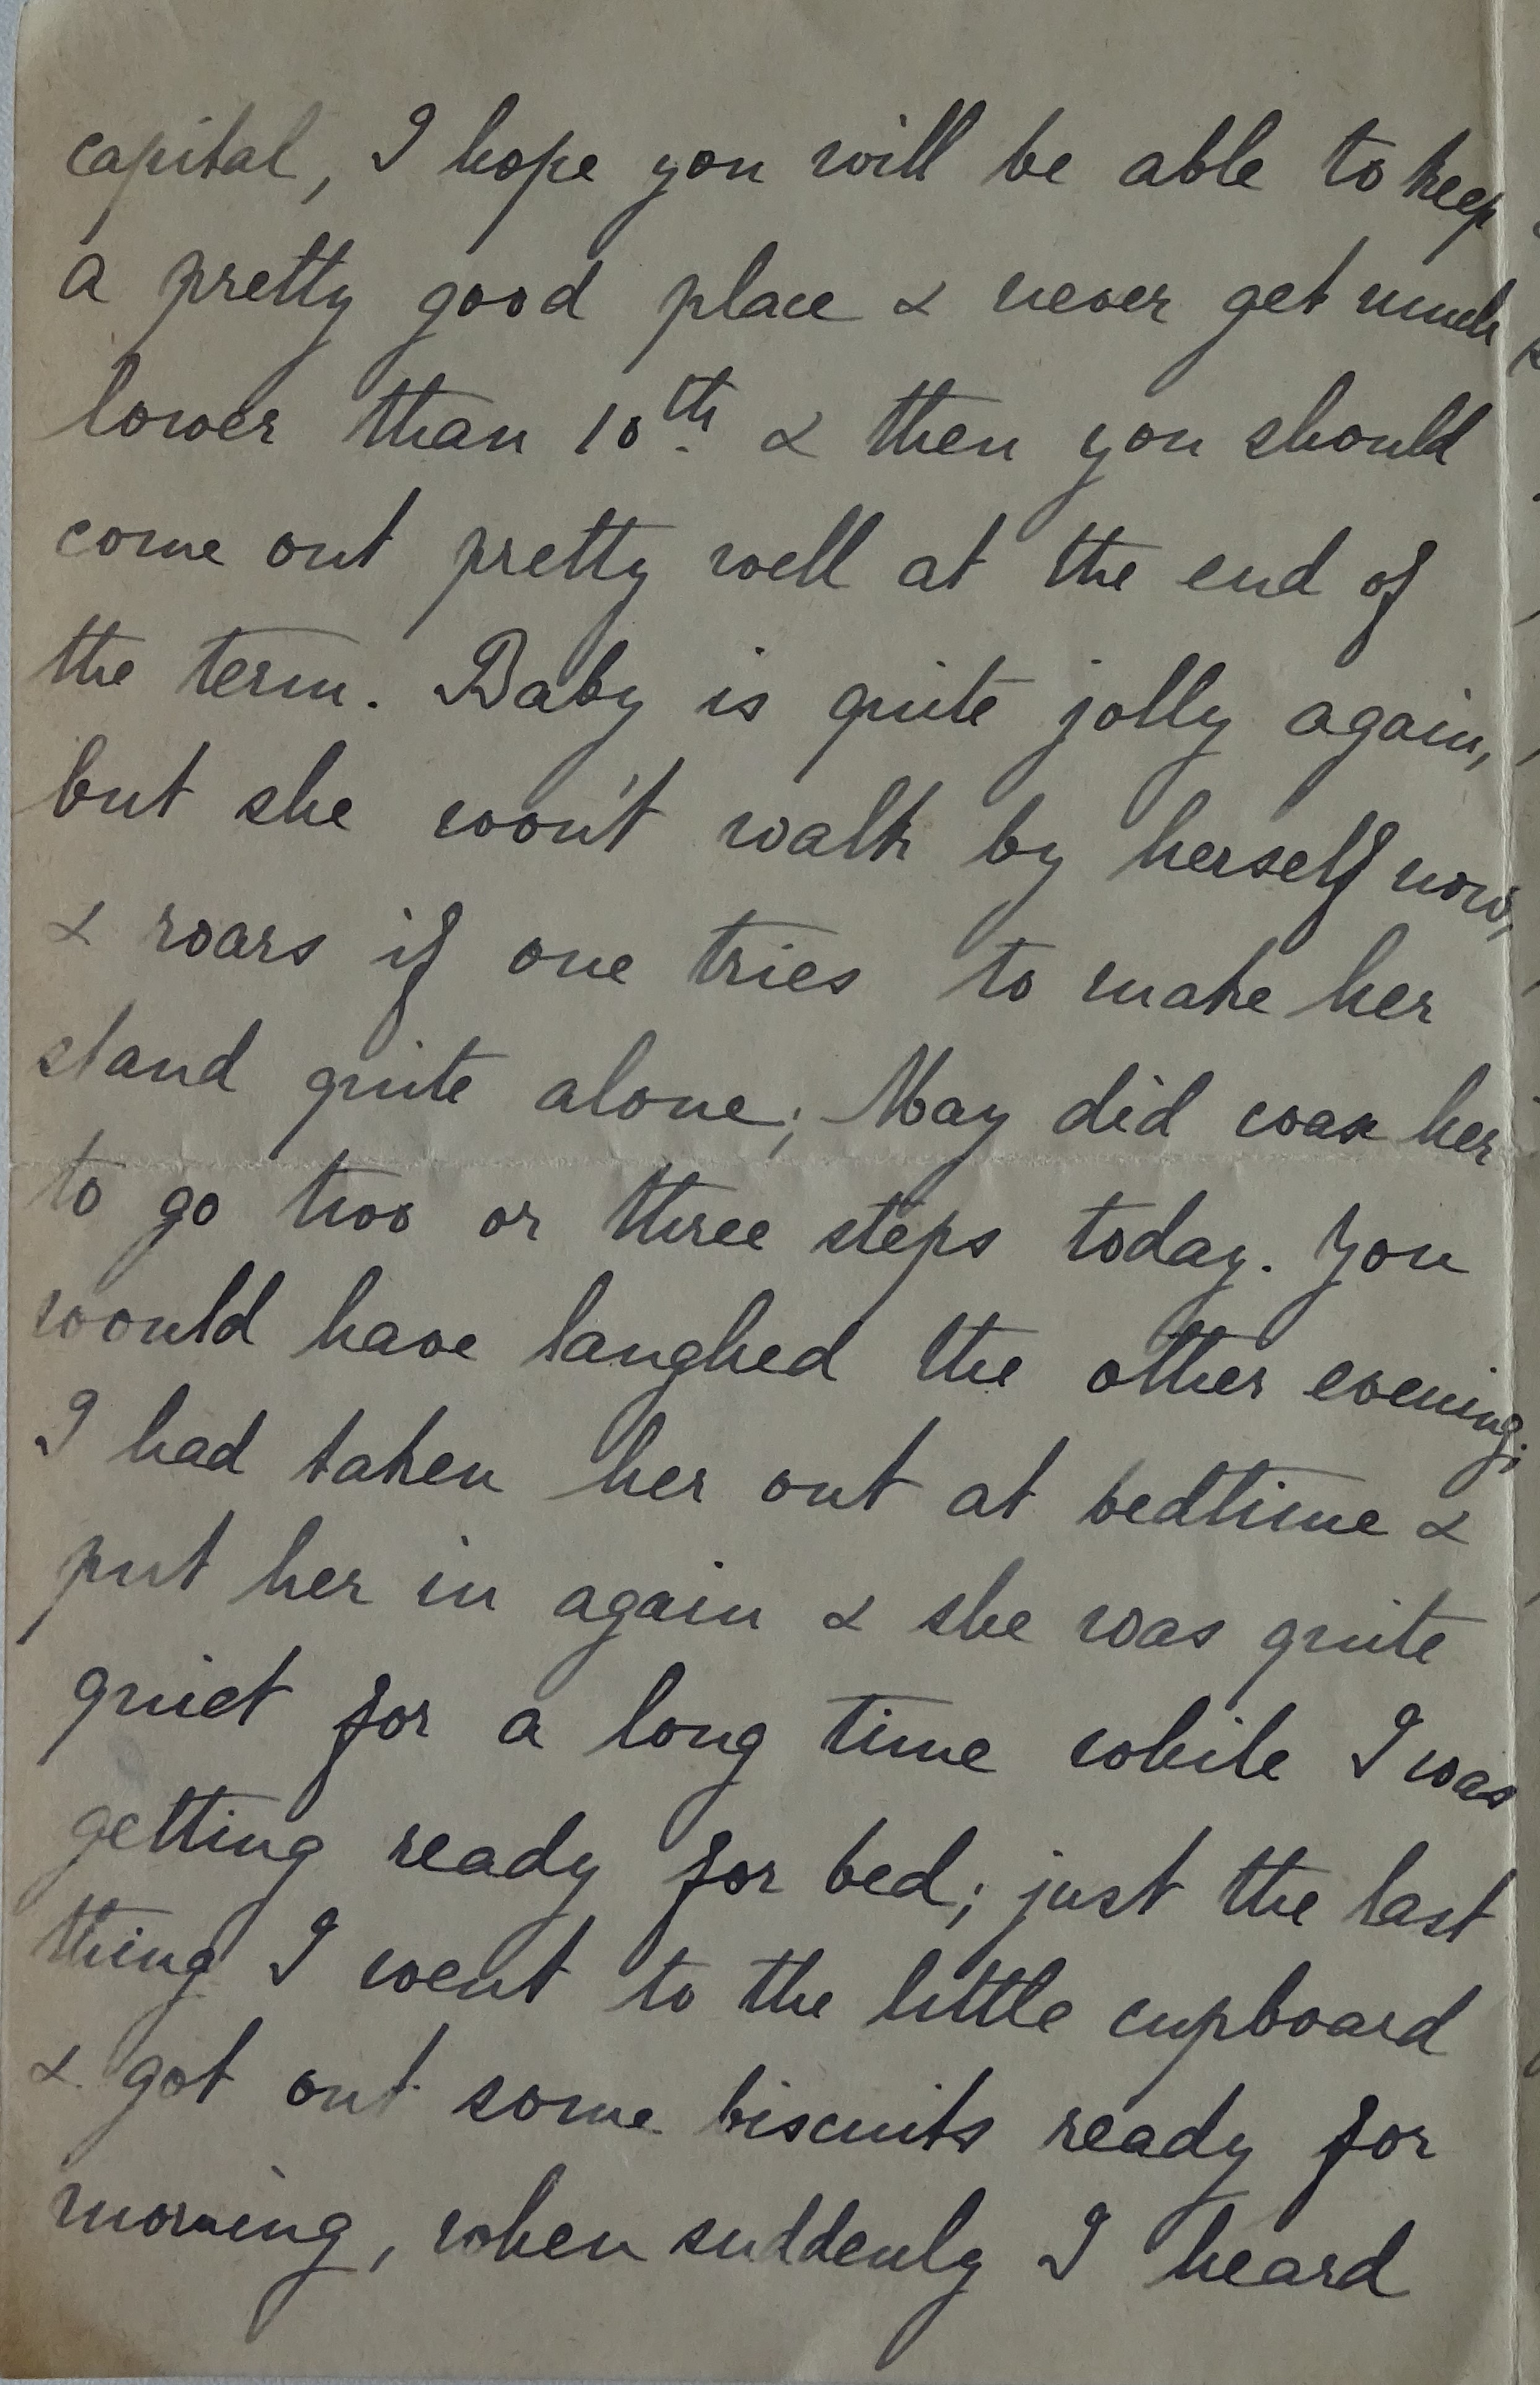 capital, I hope you will be able to keep
a pretty good place & never get much
lower than 10th & then you should
come out pretty well at the end of
the term. Baby is quite jolly again,
but she won't walk by herself now,
& roars if one tries to make her
stand quite alone; May did coax her
to go two or three steps today. You
would have laughed the other evening;
I had taken her out at bedtime &
put her in again & she was quite
quiet for a long time while I was
getting ready for bed; just the last
thing I went to the little cupboard
& got out some biscuits ready for
morning, when suddenly I heard